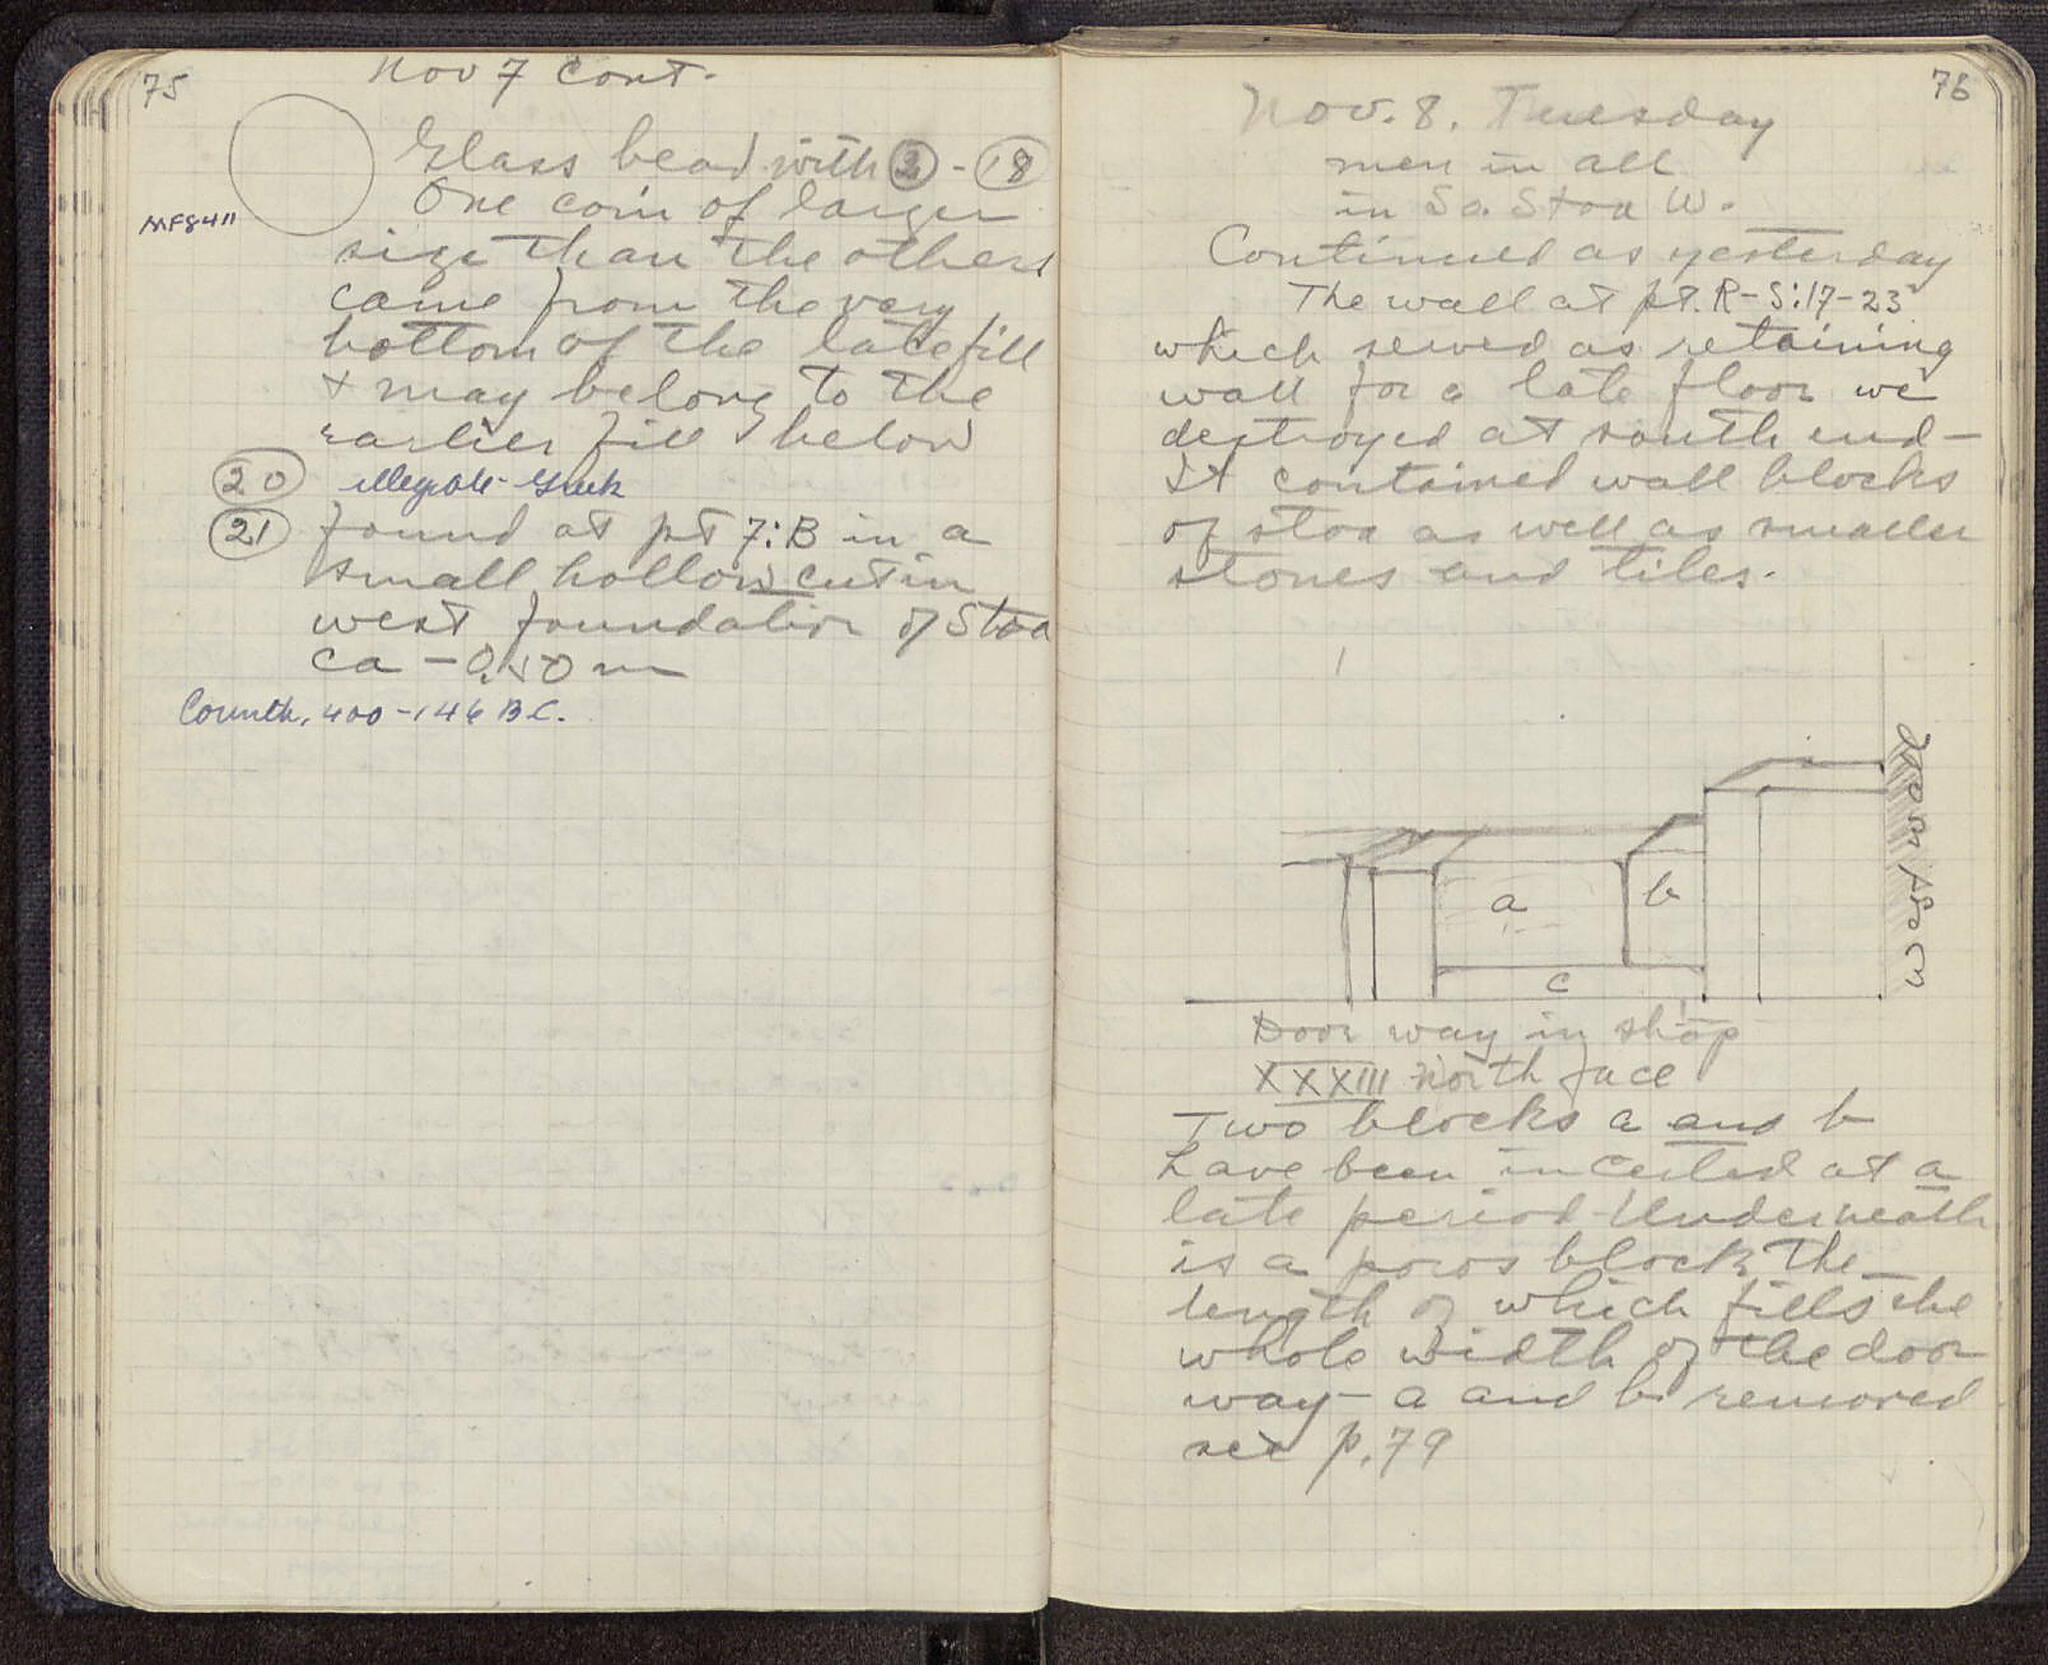 75
Nov 7 Cont.
Glass bead with (2) - (18)
MF8411
One coin of larger
size than the others
came from the very
bottom of the late fill
+ may belong to the
earlier fill below
(20) illegible - Greek
(21) found at pt 7:B in a
small hollow cut in
west foundation of Stoa
ca - 0.50 m
Corinth, 400-146 B.C.
76
Nov. 8. Tuesday
men in all
in So. Stoa W.
Continued as yesterday
The wall at pt. R-S:17-23
which served as retaining
wall for a late floor we
destroyed at south end -
It contained wall blocks
of stoa as well as smaller
stones and tiles.
a
b
c
Door way in shop
XXXIII North face
Two blocks a and b
have been incerted at a
late period - Underneath
is a poros block the
length of which fills the
whole width of the door
way - a and b removed
see p. 79